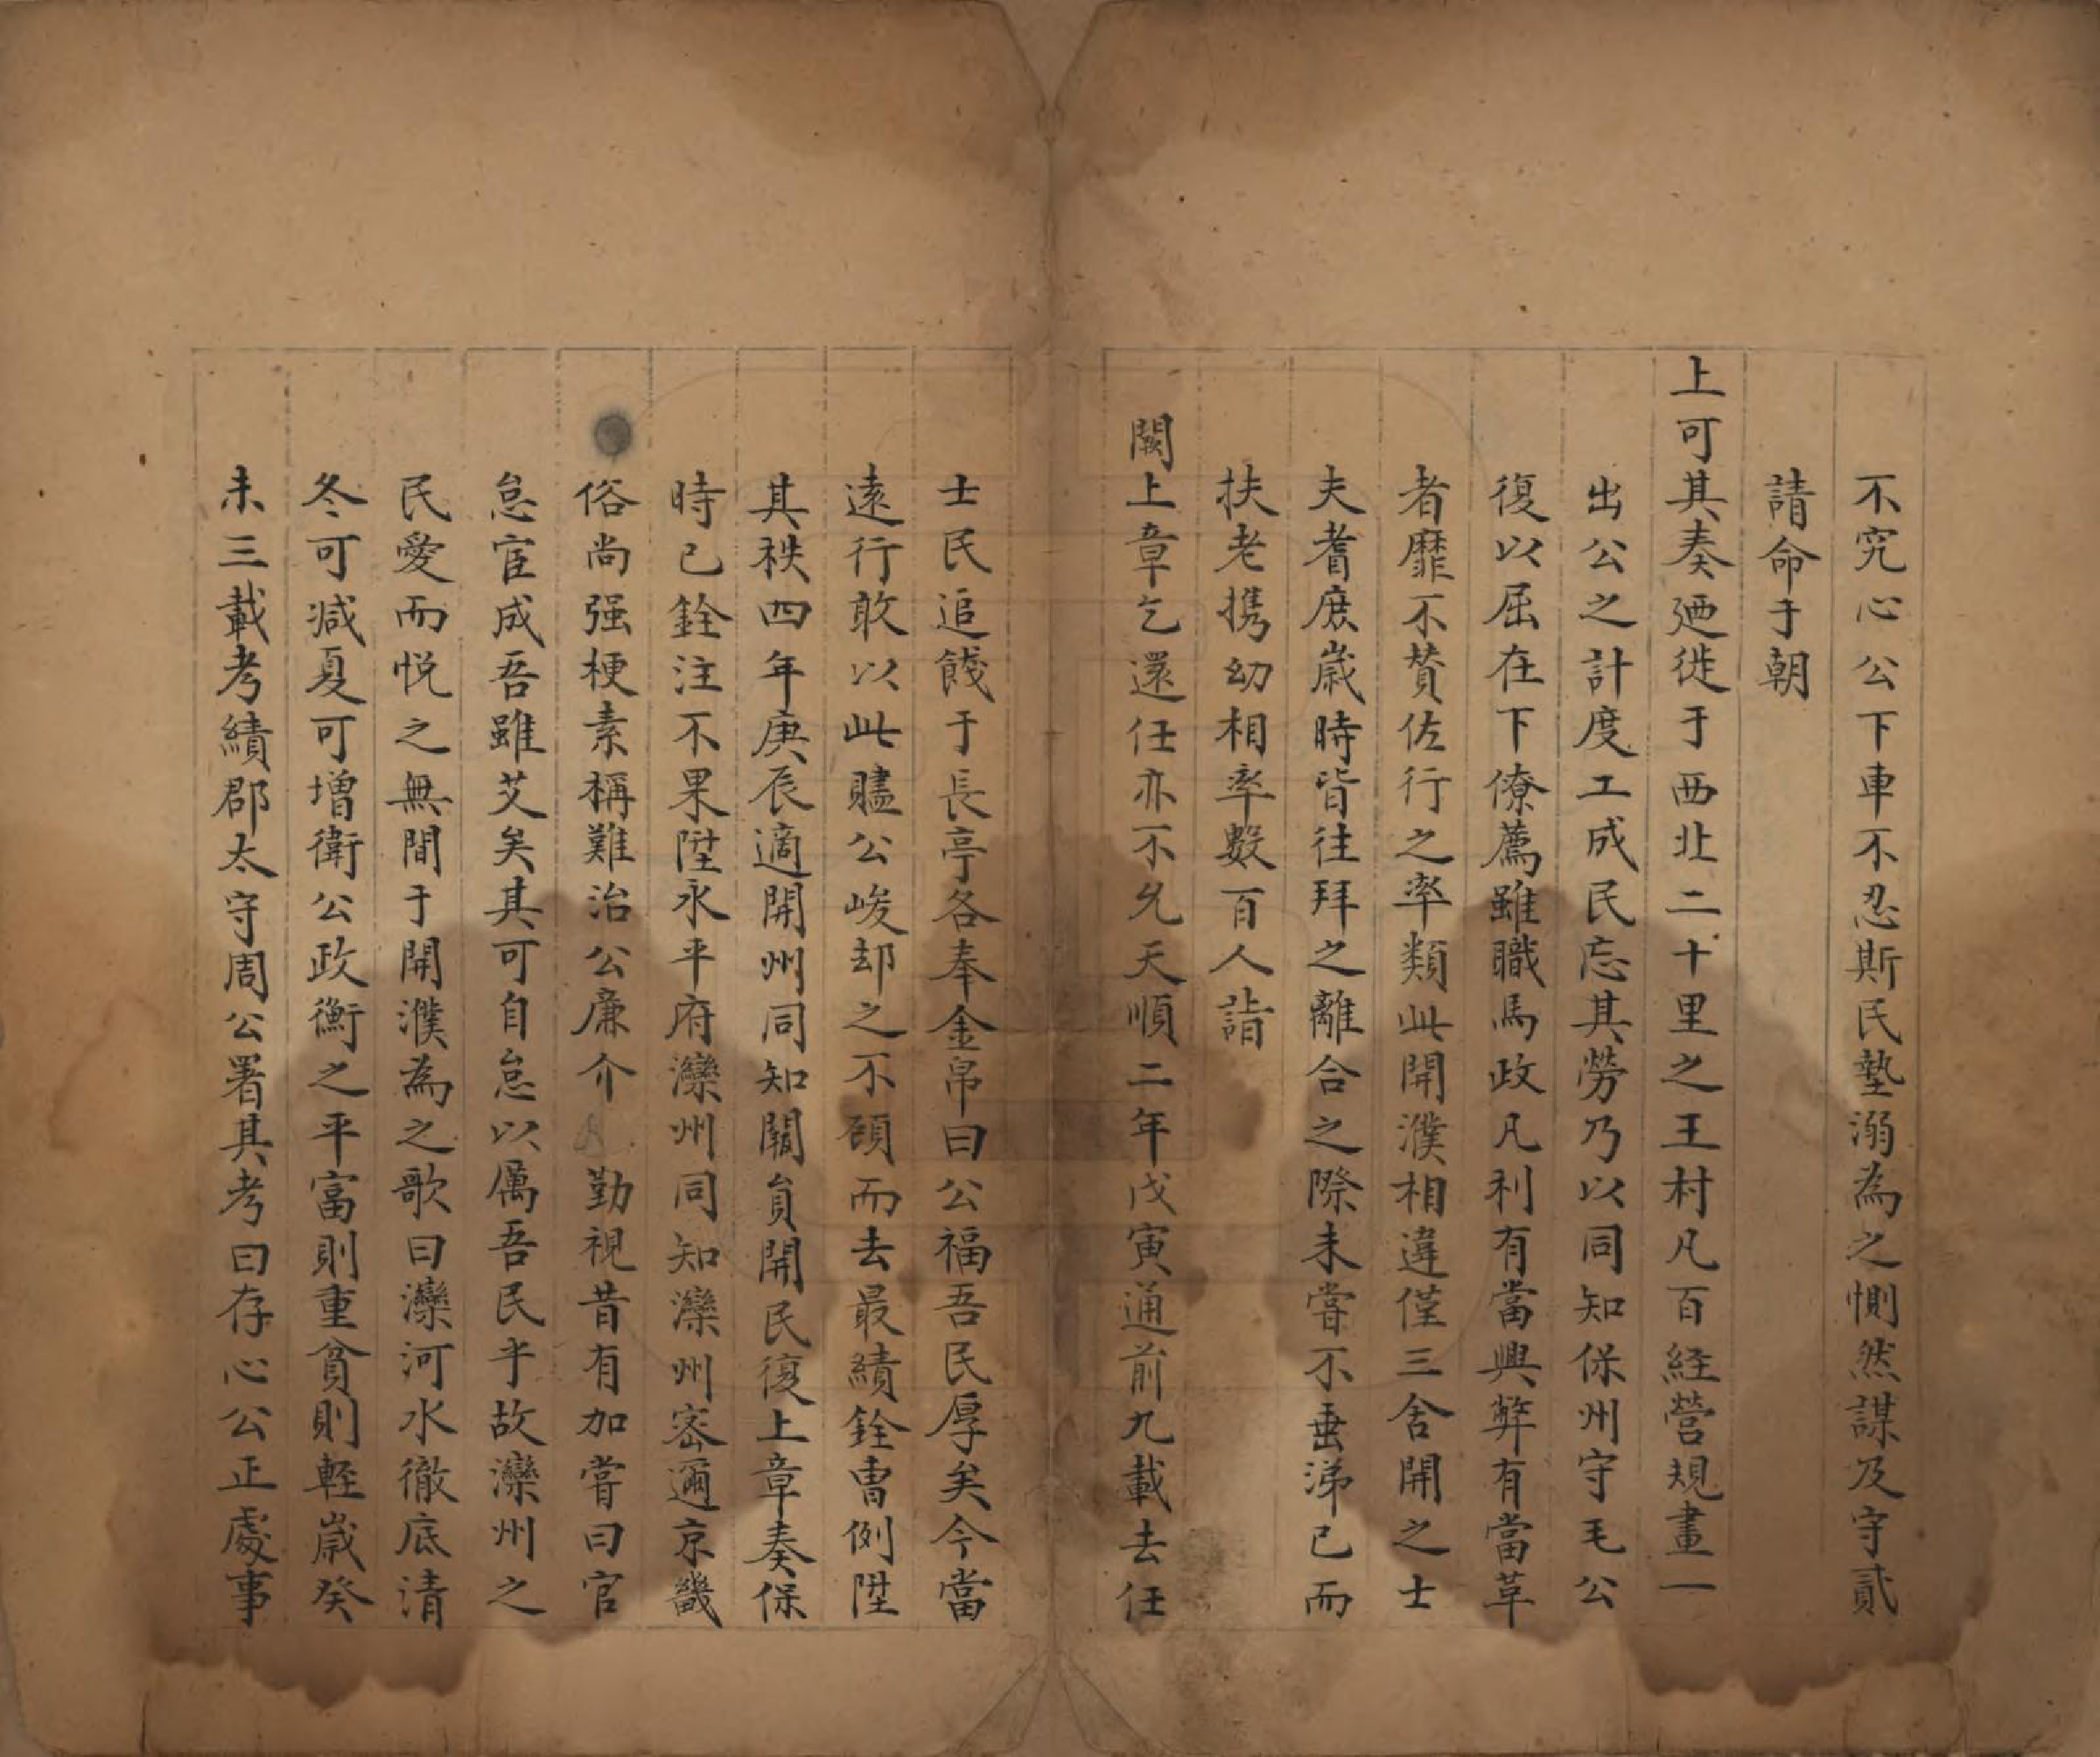 不究心公下車不忍斯民墊溺為之惻然謀及守貳
請命于朝
上可其奏廼徙于西北二十里之王村凡百経營規畫一
出公之計度工成民忘其勞乃以同知保州守毛公
復以屈在下僚薦雖職馬政凡利有當興弊有當革
者靡不賛佐行之率類此開濮相違僅三舍開之士
夫耆庶歲時皆往拜之離合之際未甞不垂涕已而
扶老携幼相率數百人詣
闕上章乞還任亦不允天順二年戊寅通前九載去任
士民追餞于長亭各奉金帛曰公福吾民厚矣今當
遠行敢以此贐公峻却之不顧而去最績銓曹例陞
其秩四年庚辰適開州同知闕貟開民復上章奏保
時已銓注不果陞永平府灤州同知灤州密邇京畿
俗尚强梗素稱難治公廉介勤視昔有加甞曰官
怠宦成吾雖艾矣其可自怠以厲吾民乎故灤州之
民愛而悦之無間于開濮為之歌曰灤河水徹底清
冬可减夏可增衛公政衡之平富則重貧則軽歲癸
未三載考績郡太守周公署其考曰存心公正處事